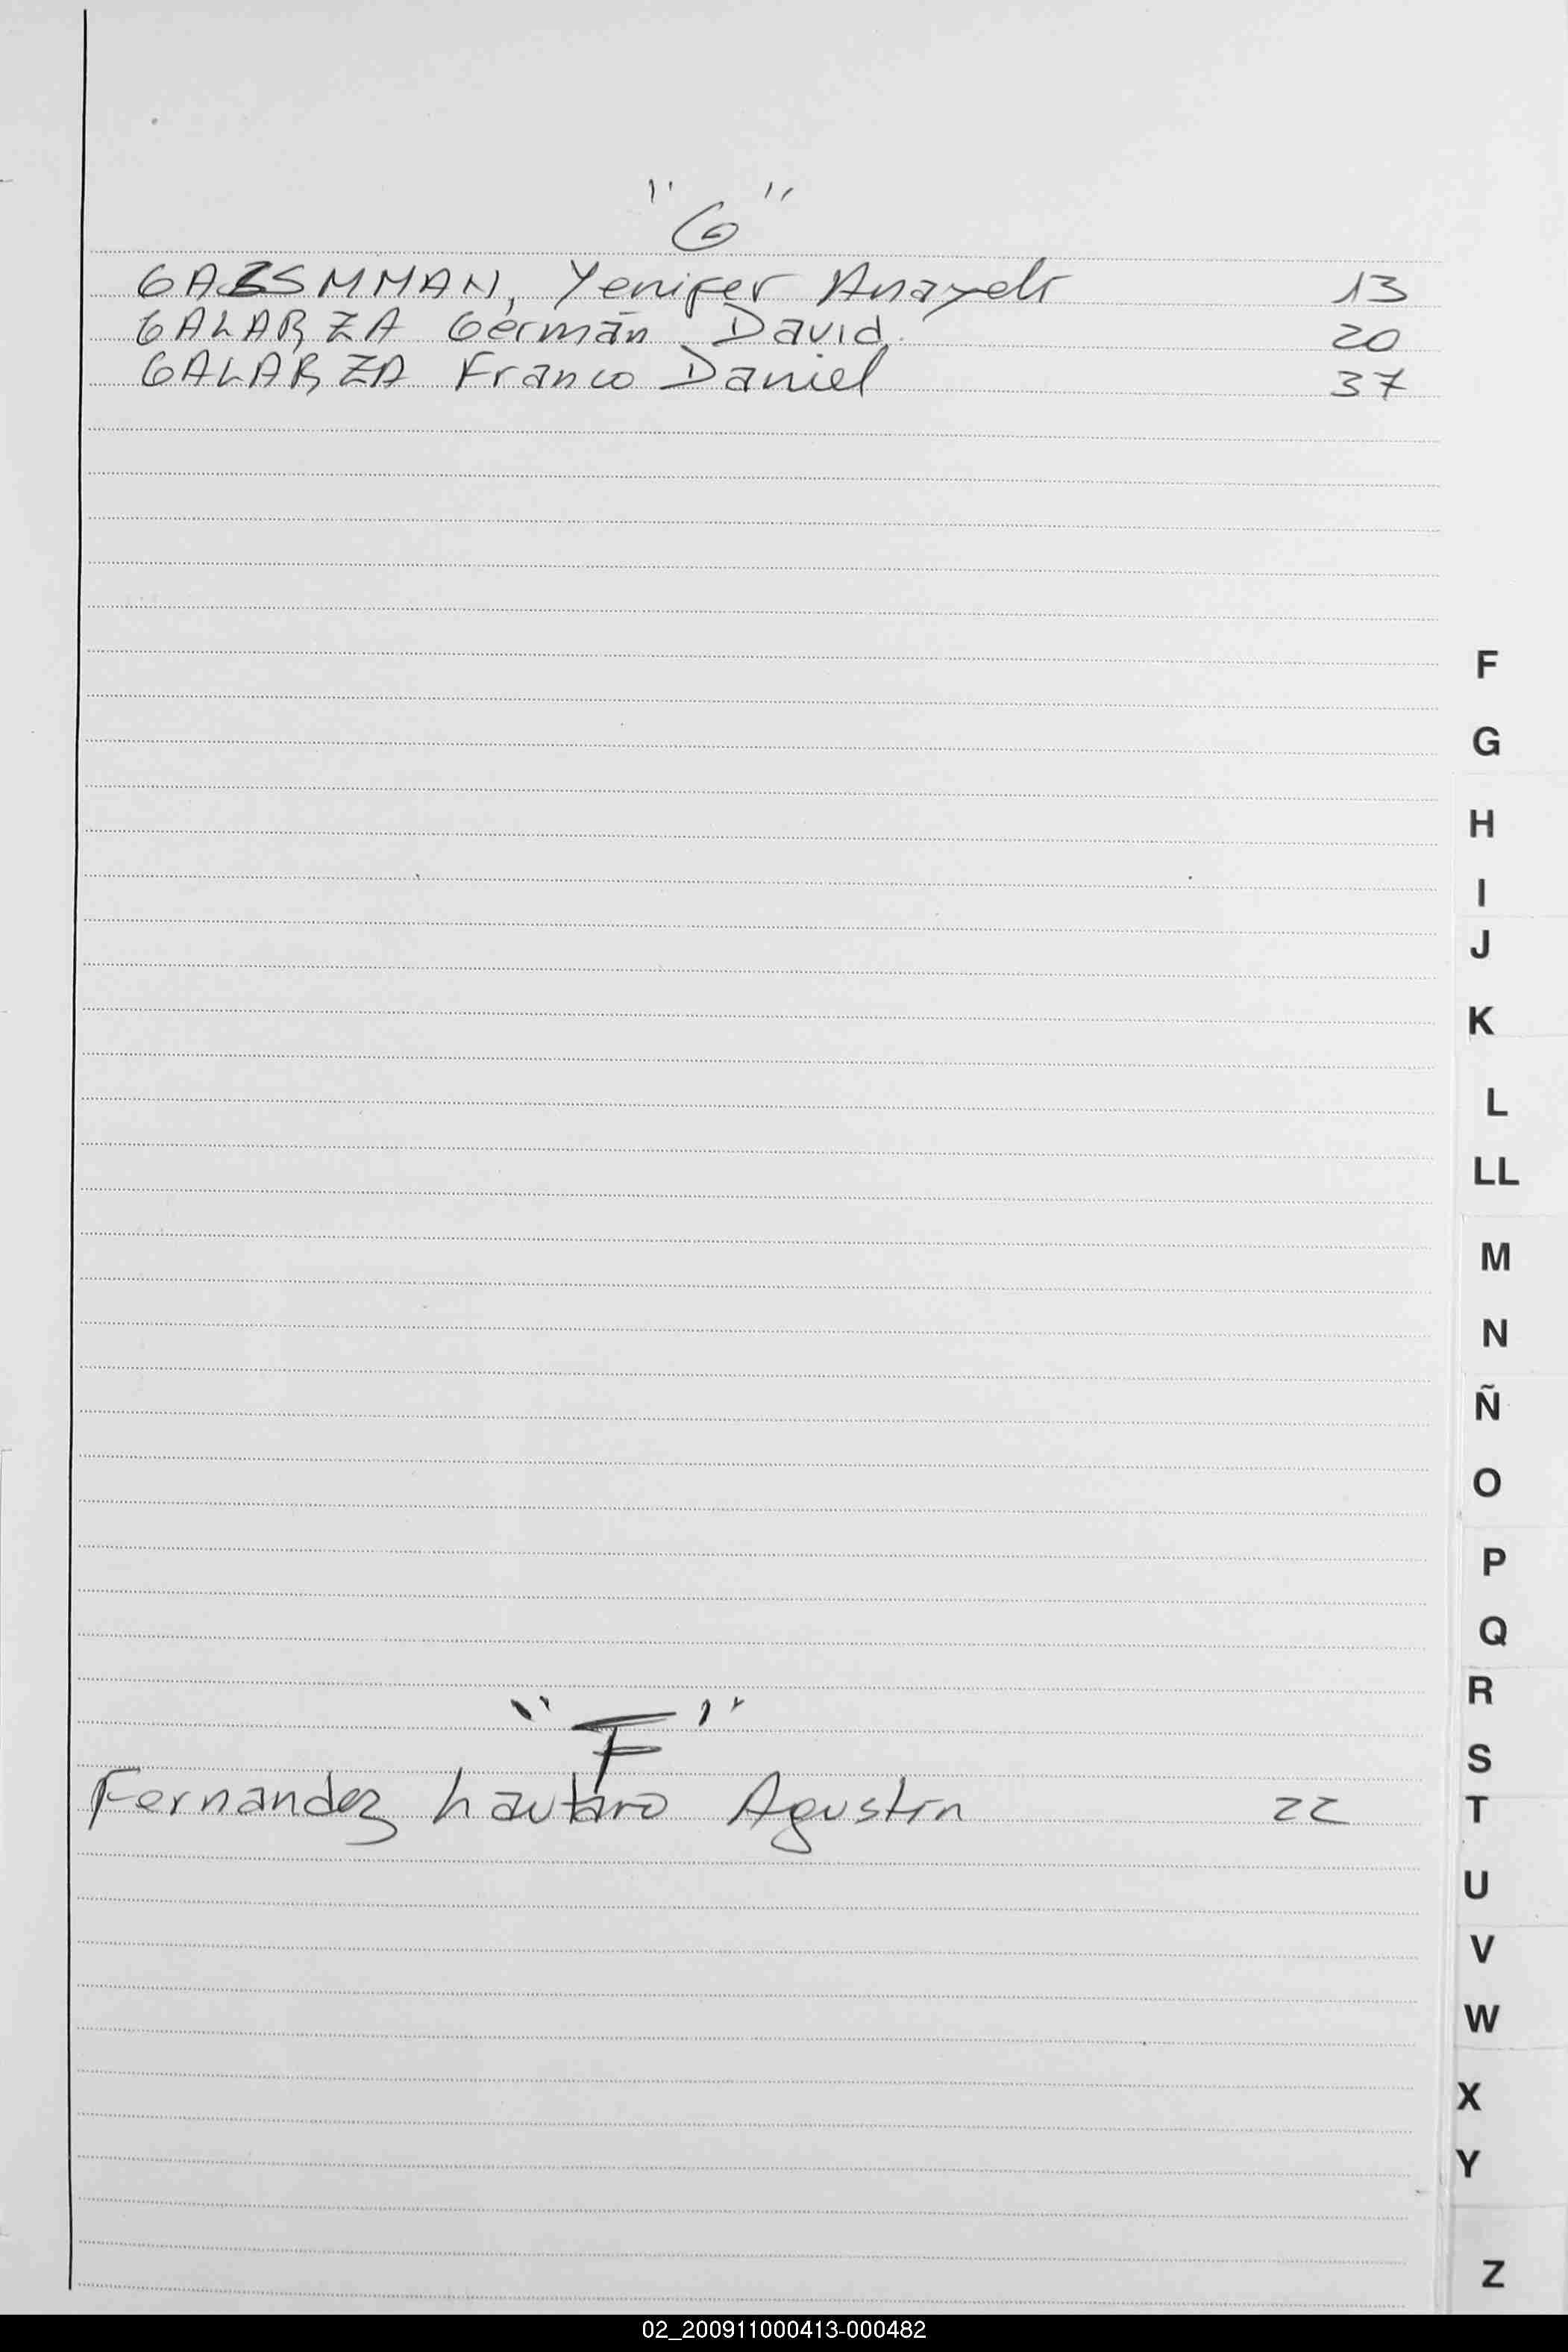 "G"
GASSMMAN, Yenifer Anayeli 13
GALARZA Germán David. 20
GALARZA Franco Daniel 37
F
G
H
I
J
K
L
LL
M
N
Ñ
O
P
Q
R
"F"
S
Fernandez Lautaro Agustín 22
T
U
V
W
X
Y
Z
02_200911000413-000482